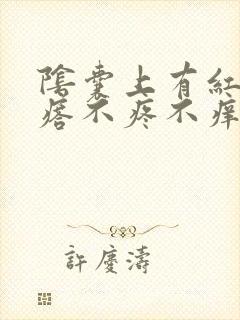 陰囊上有紅
痞不疼不痒
許慶濤